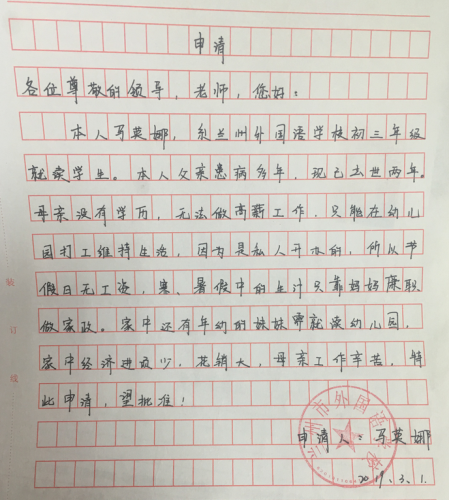 申请
各位尊敬的领导，老师，您好：
本人马英娜，系兰州外国语学校初三年级
就读学生。本人父亲患病多年，现已去世两年。
母亲没有学历，无法做高薪工作，只能在幼儿
园打工维持生活，因为是私人开办的，所以节
假日无工资，寒、暑假中的生计只靠妈妈兼职
做家政。家中还有年幼的妹妹需就读幼儿园，
家中经济进项少，花销大，母亲工作辛苦，特
此申请，望批准！
申请人：马英娜
2019.3.1.
装
订
线
兰州市外国语学校